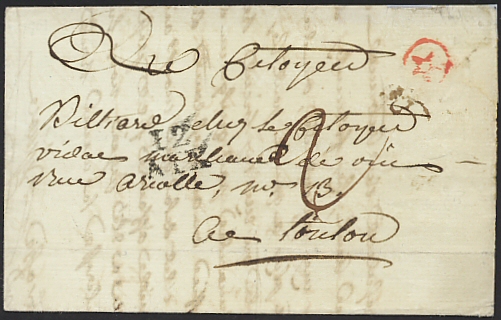 Au Citoyen
Villiard chez le Citoyen
vidal marchand de vin
rue aralle, no. 13.
12
A Toulon